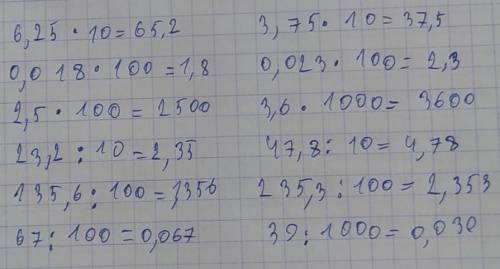 6,25 · 10 = 65,2
3,75 · 10 = 37,5
0,018 · 100 = 1,8
0,023 · 100 = 2,3
2,5 · 100 = 2500
3,6 · 1000 = 3600
23,2 : 10 = 2,35
47,8 : 10 = 4,78
135,6 : 100 = 1,356
235,3 : 100 = 2,353
67 : 100 = 0,067
39 : 1000 = 0,039